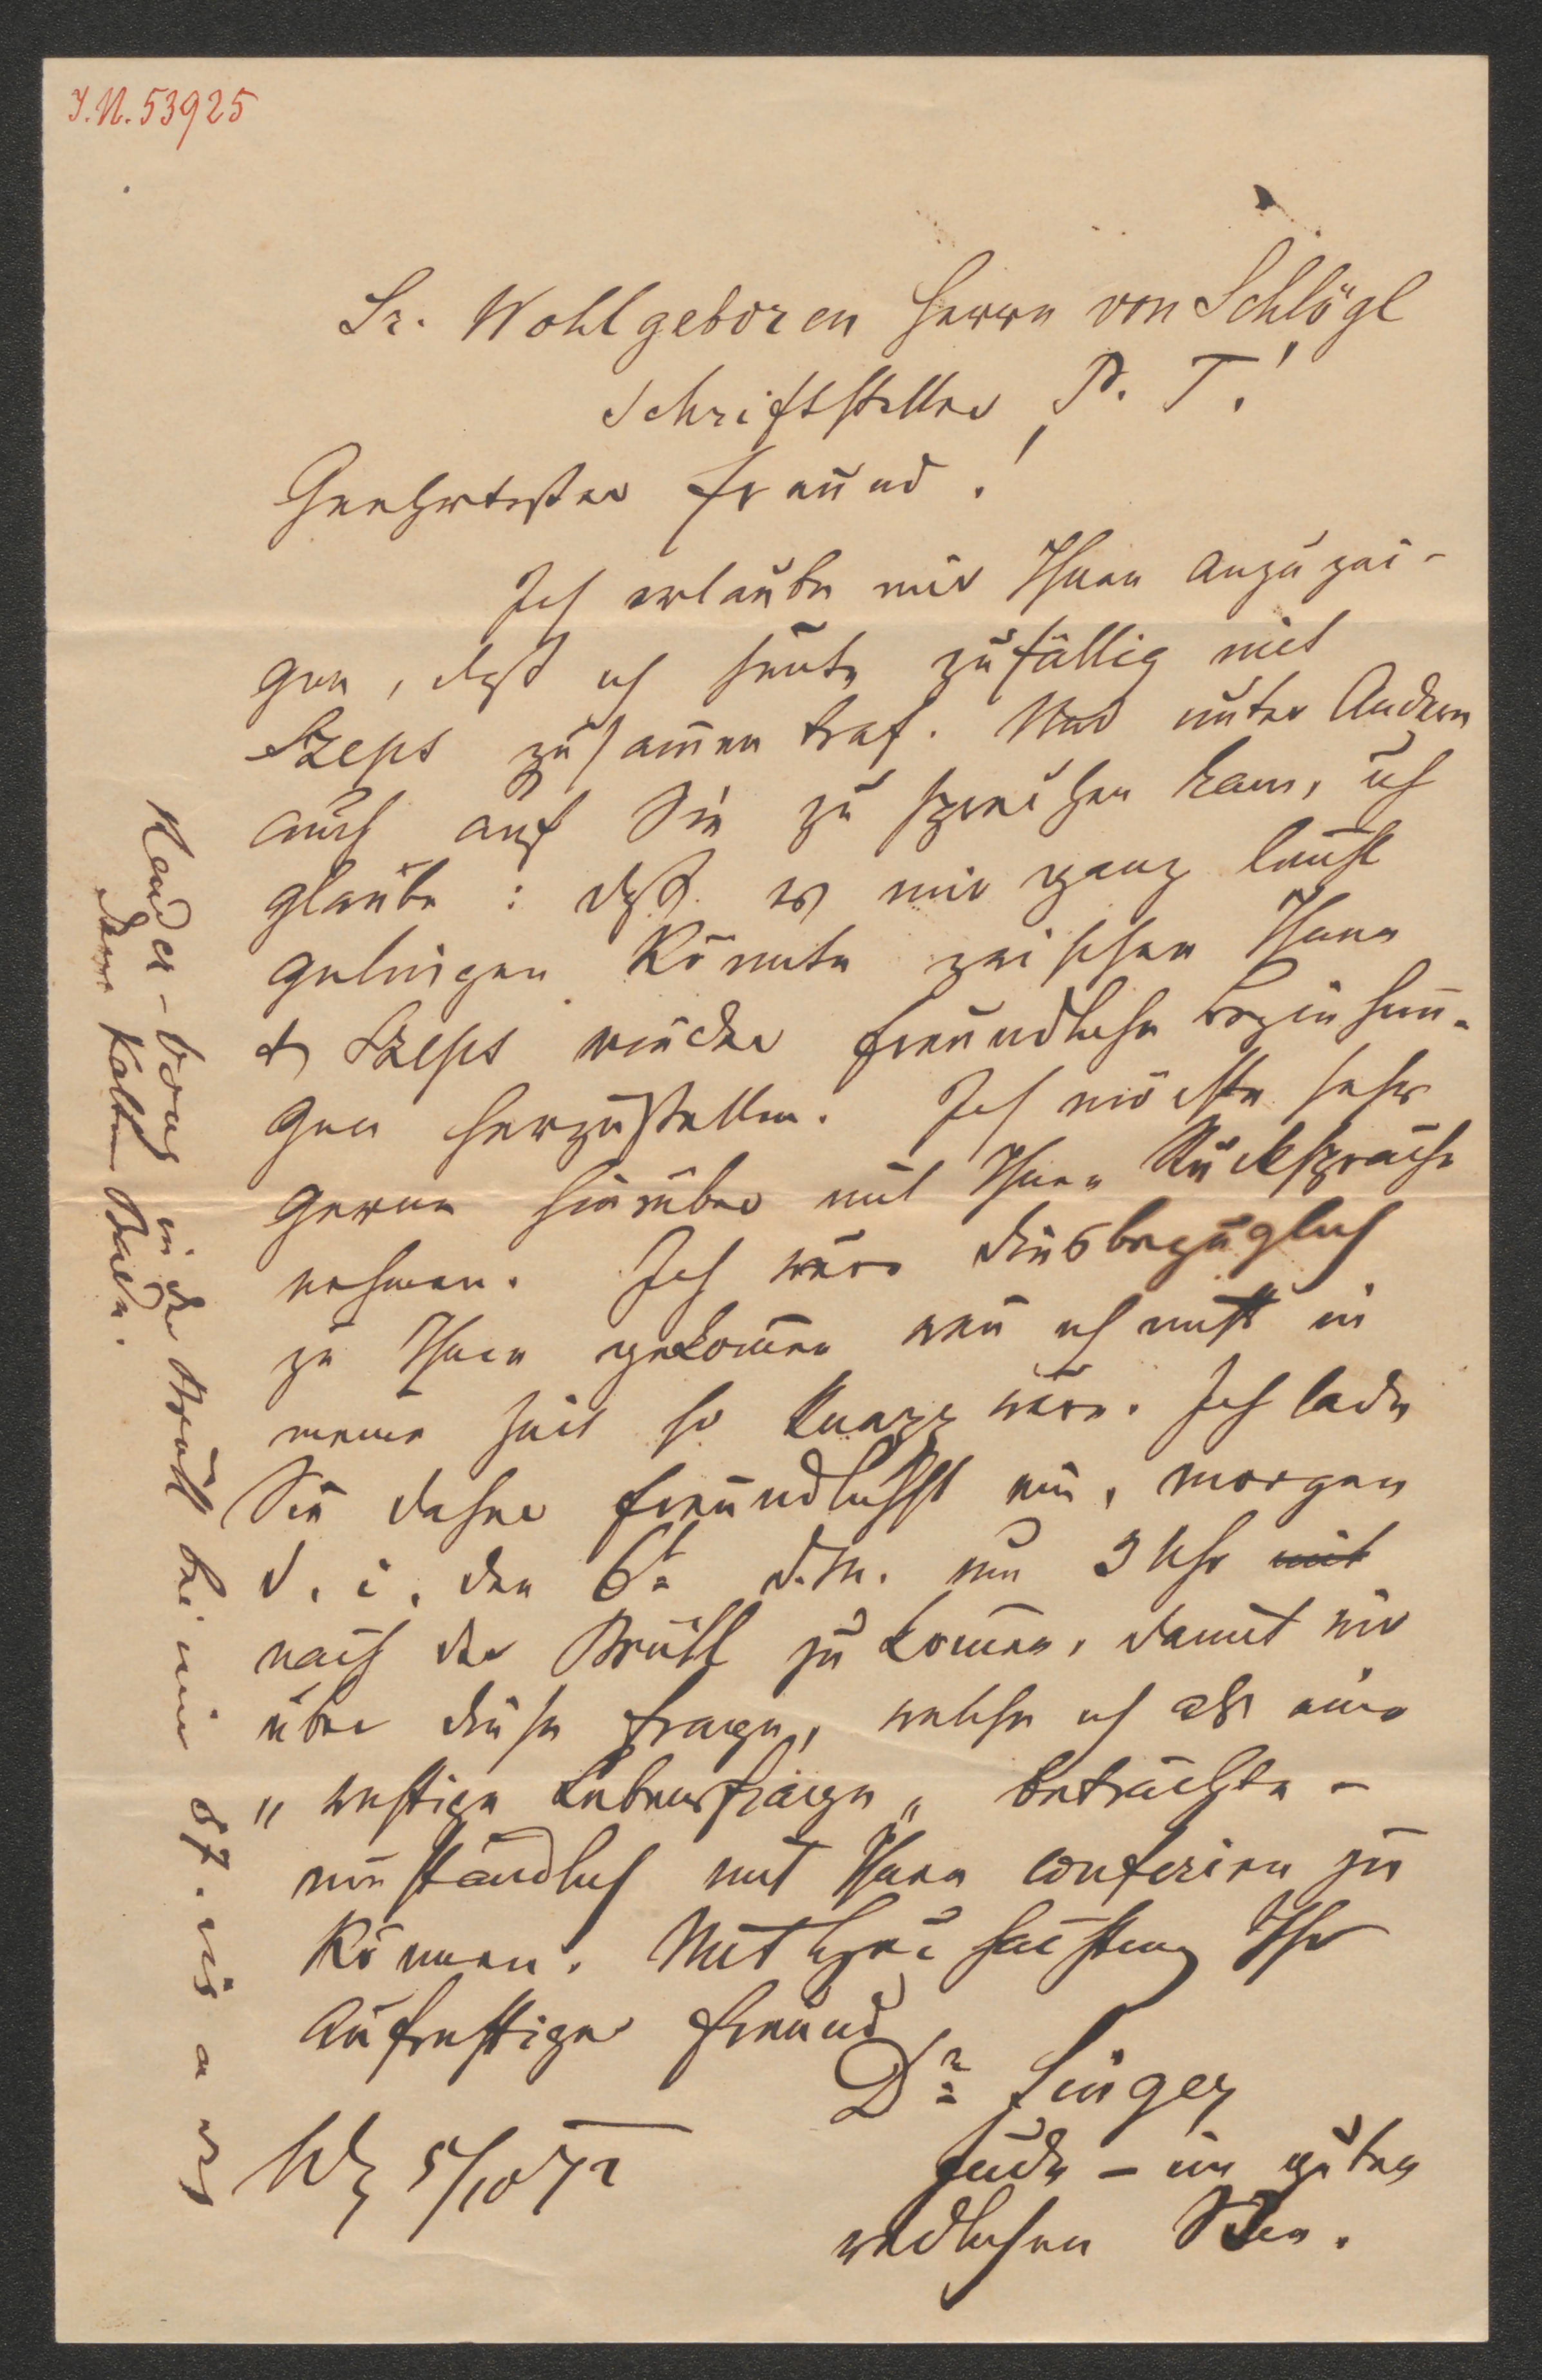 I.N. 53925
Sr. Wohlgeboren Herrn von Schlögl
Schriftsteller P. T.!
Geehrtester Freund!
Ich erlaube mir Ihnen anzuzei-
gen, daß ich heute zufällig mit
Szeps zusam̅en traf. Und unter Andern
auch auf Sie zu sprechen kam, ich
glaube: daß es mir ganz leicht
gelingen könnte zwischen Ihnen
& Szeps wieder freundliche Beziehun-
gen herzustellen. Ich möchte sehr
gerne hierüber mit Ihnen Rücksprache
nehmen. Ich wäre diesbezüglich
zu Ihnen gekom̅en wen̅ ich nicht in
meine Zeit so knapp wäre. Ich lade
Sie daher freundlichst ein, morgen
d. i. den 6t d. M. um 3 Uhr mit
nach der Brühl zu kom̅en, damit wir
über diese Frage, welche ich als eine
"wichtige Lebensfrage" betrachte -
umständlich mit Ihnen conferiren zu
können. Mit Hochachtung Ihr
aufrichtiger Freund
Dr. Singer
Jude - im guten
redlichen Sin̅.
W 5/10 72
Rendez-vous in der Brühl bei mir 57. vis a vis
dem kalten Bade.